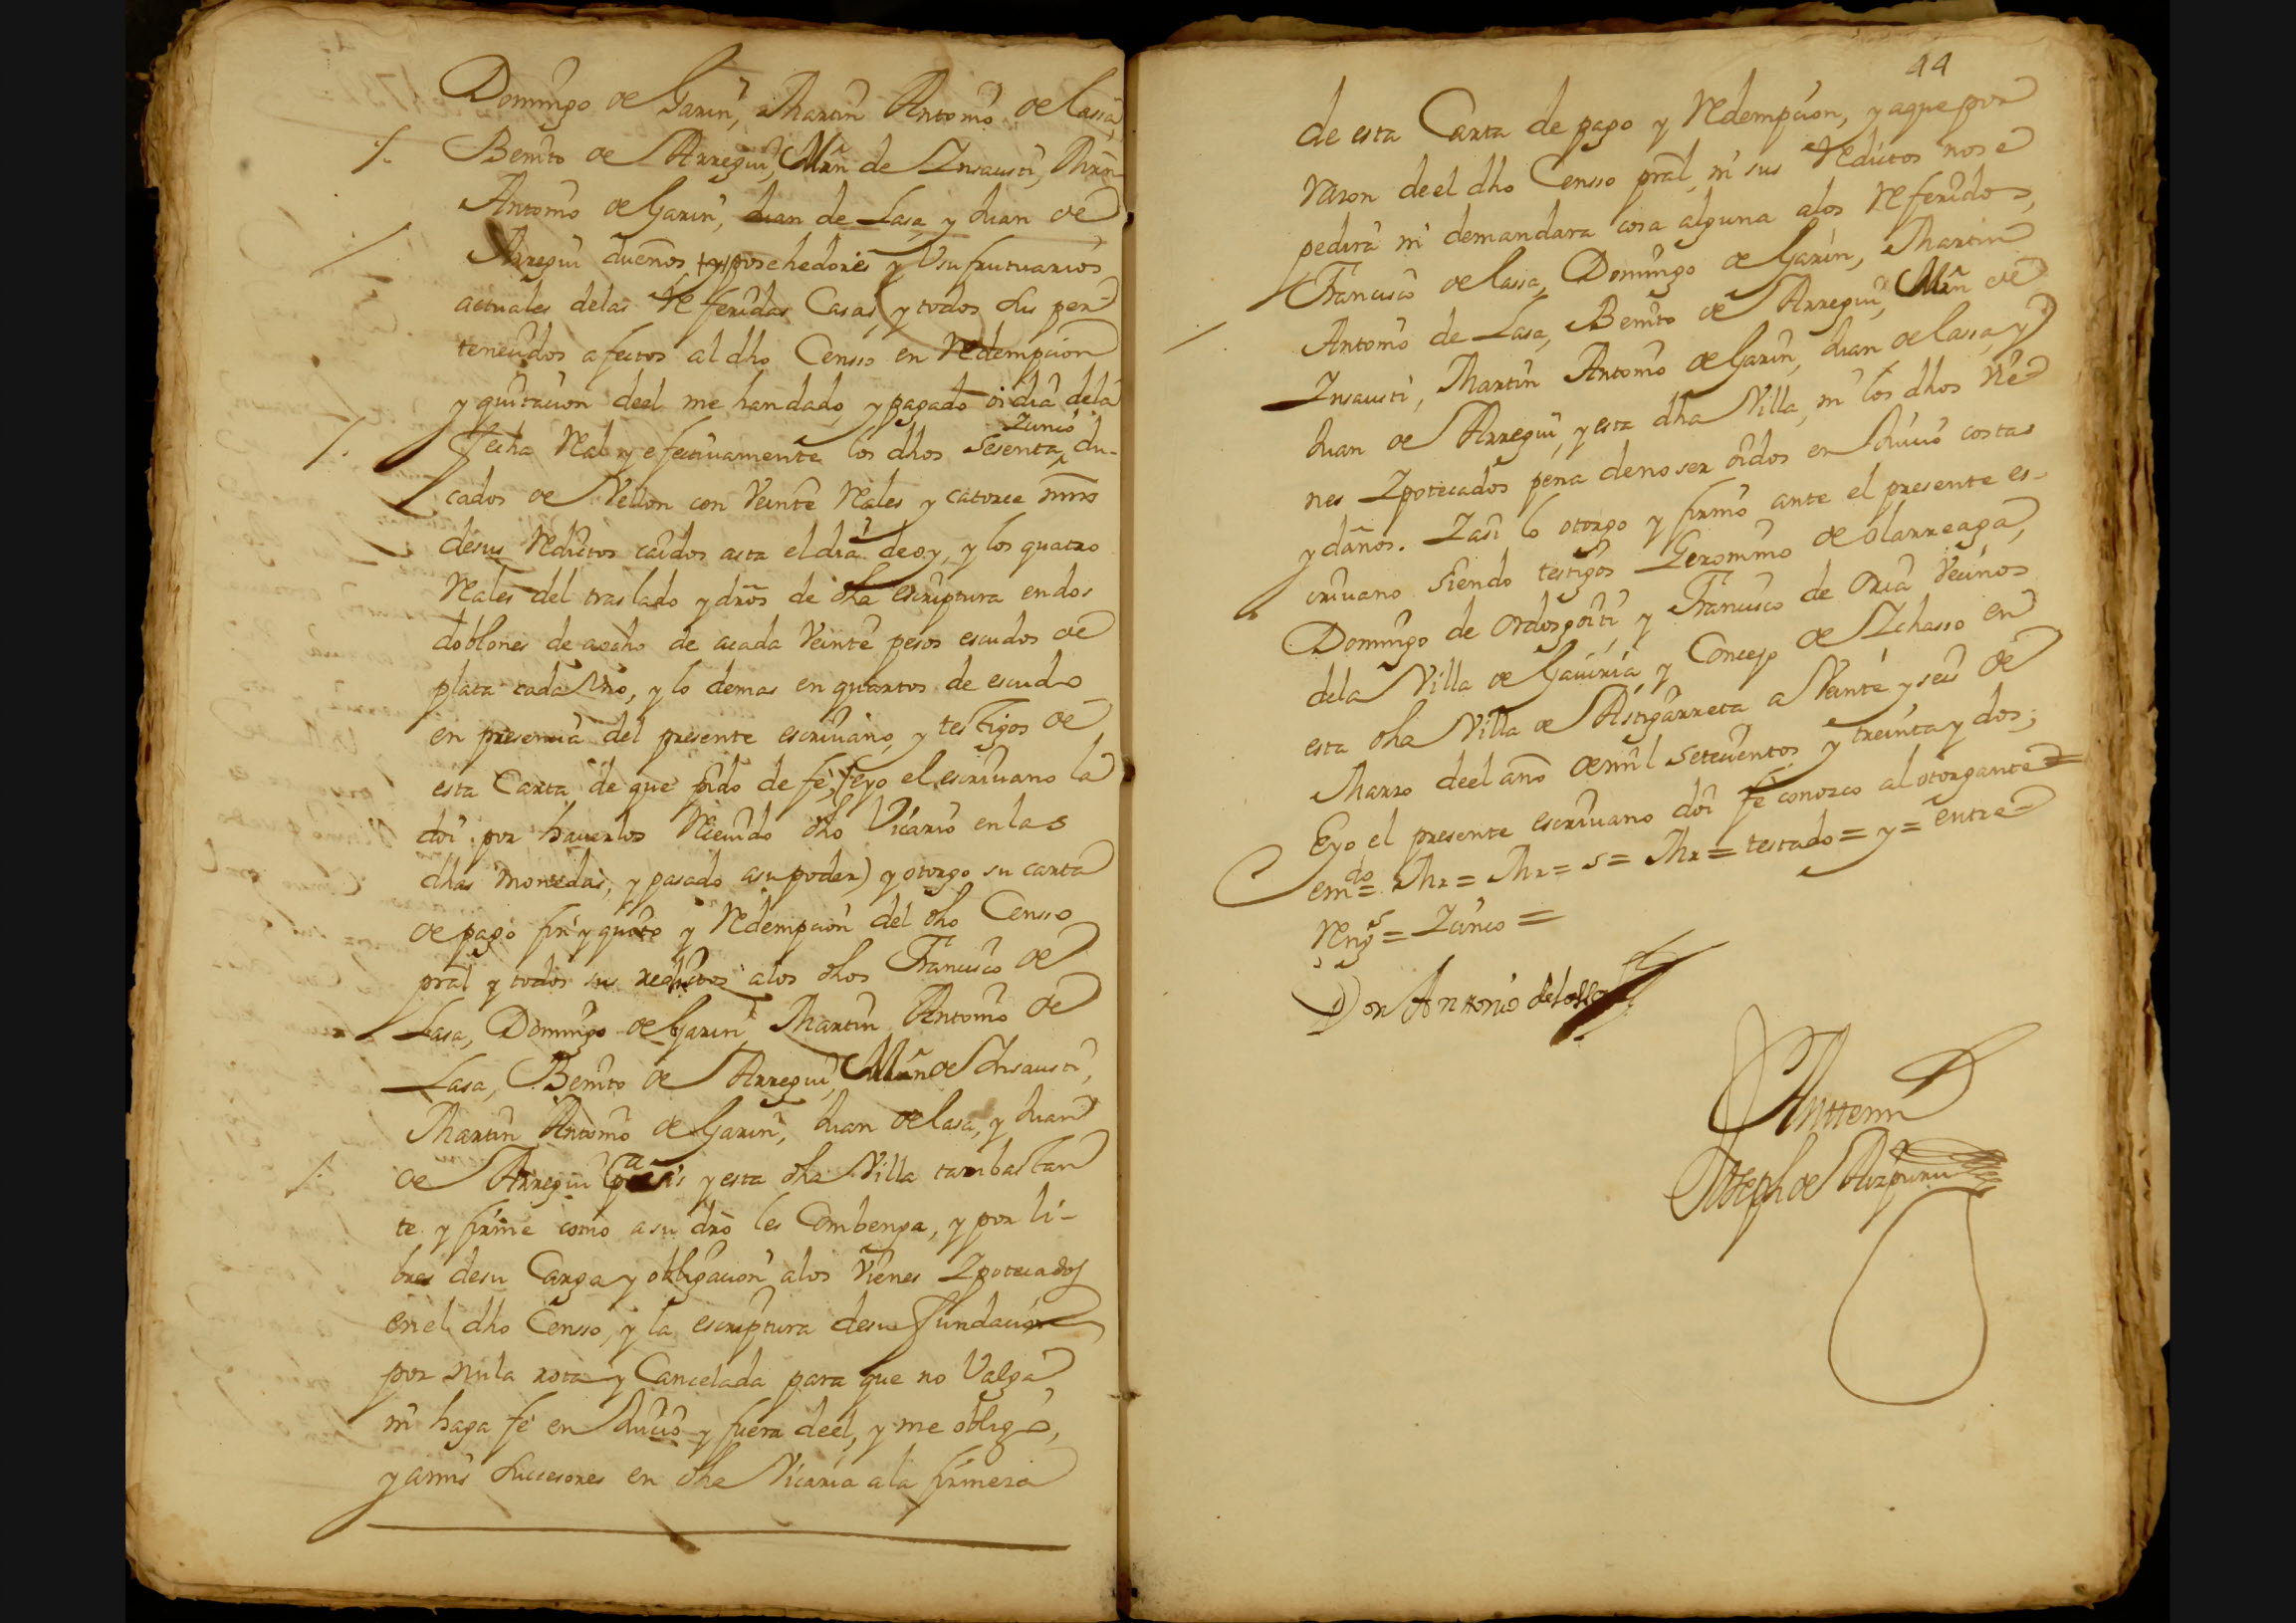 Domingo de Garin, Martin Antonio de Lassa,
Benito de Arregui, Mrñ de Insausti, Mrñ
Antonio de Garin, Juan de Lasa, y Juan de
Arregui dueños y posehedores y Usufrutuarios
actuales delas Referidas Casas, y todos sus per-
tenecidos afectos al dho Censso en Redempcion
y quitacion deel me handado, y pagado oi dia dela
fecha Real y efectivamente los dhos sesenta du-
Junio
cados de Vellon con Veinte Reales y catorce mrs
desus Reditos caidos asta eldia deoy, y los quatro
Reales del traslado y drõs de dha escriptura endos
doblones de aocho de acada Veinte pesos escudos de
plata cada Uno, y lo demas en quartos de escudo
en presencia del presente escrivano, y testigos de
esta Carta de que pido de fe, (eyo el escrivano la
doi por haverlos Recivido dho Vicario en las
dhas monedas, y pasado asu poder) y otorgo su carta
de pago fin y quito y Redempcion del dho Censso
pral y todos sus reditos alos dhos Francisco de
Lasa, Domingo de Garin, Martin Antonio de
Lasa, Benito de Arregui, Mrñ de Insausti,
Martin Antonio de Garin, Juan de lasa, y Juan
de Arregui y esta dha Villa tambastan
te y firme como a su drõ les Combenga, y por li-
bres desu Carga y obligacion alos Vienes Ipotecados
en el dho Censso, y la escriptura desu fundacion
por nula rota y Cancelada para que no Valga,
ni haga fe en Juicio y fuera deel, y me obligo,
y amis Successores en dha Vicaria ala firmeza
44
de esta Carta de pago y Redempcion, y aque por
razon deel dho Censso pral, ni sus Reditos nose
pedira ni demandara cosa alguna alos Referidos,
Francisco de lassa, Domingo de Garin, Martin
Antonio de Lasa, Benito de Arregui, Mrñ de
Insausti, Martin Antonio de Garin, Juan de lassa, y
Juan de Arregui, y esta dha Villa, ni los dhos Vie-
nes Ipotecados pena deno ser oidos en Juicio costas
y daños. Iasi lo otorgo y firmo ante el presente es-
crivano siendo testigos Geronimo de olarreaga,
Domingo de Ordosgoiti, y Francisco de Oria Vecinos
dela Villa de Gaviria, y Concejo de Ichasso en
esta dha Villa de Astigarreta a Veinte y seis de
Marzo deel año de mil setecientos y treinta y dos;
Eyo el presente escrivano doi fe conozco al otorgante =
emdo = Mr = Mr = s = Mr = testado = y = entre
Rengs = Junio =
Don Antonio de
Antte mi
Joseph de Aizpuru